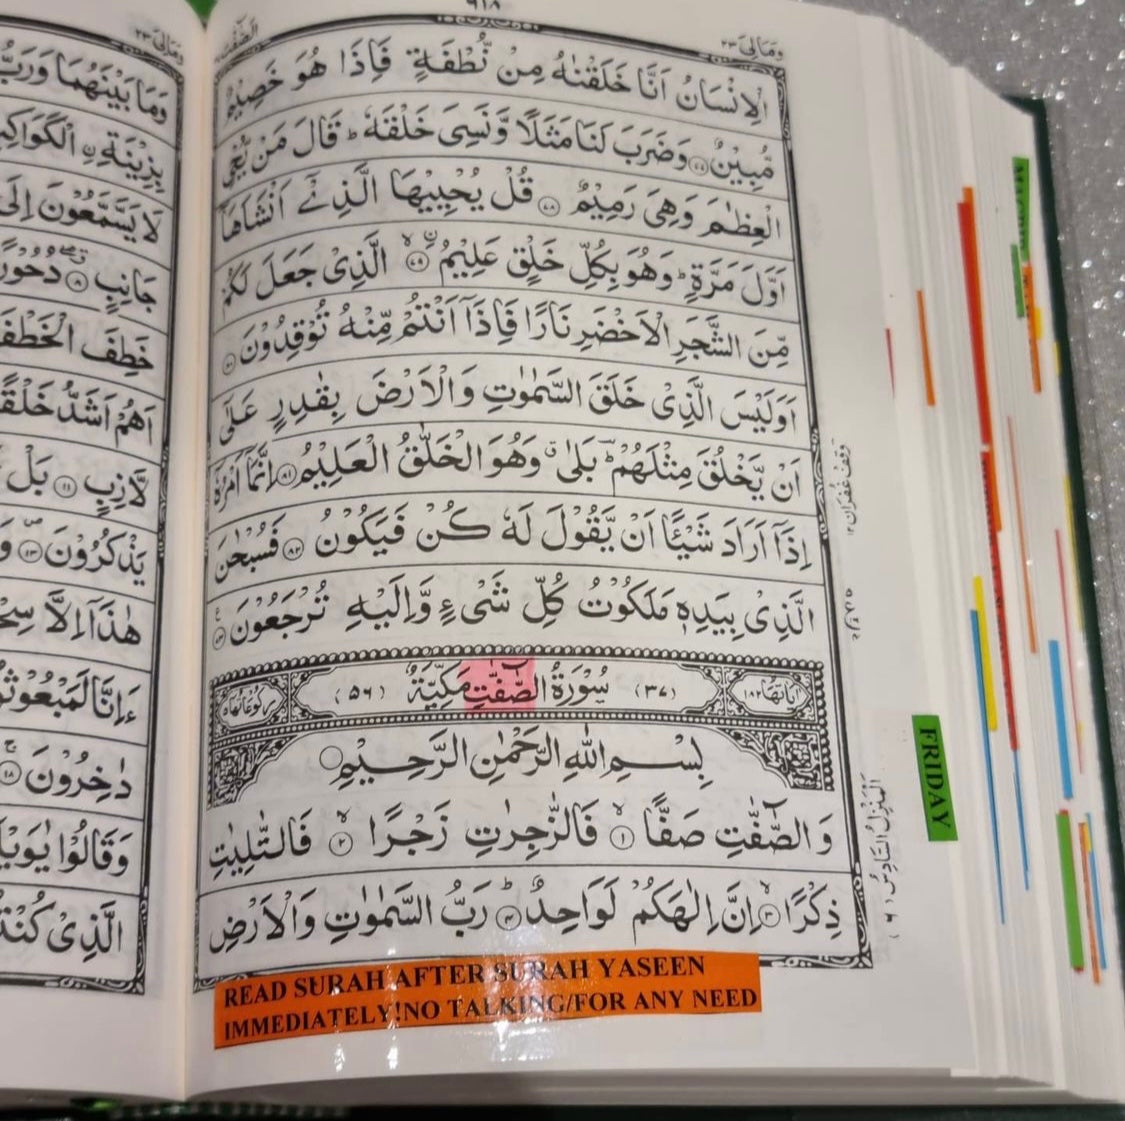 ٦١٨
وَمَالِىَ ٢٣
الصّٰفّٰت
الْاِنْسَانُ اَنَّا خَلَقْنٰهُ مِنْ نُّطْفَةٍ فَاِذَا هُوَ خَصِيْمٌ
مُّبِيْنٌ ﴿٧٧﴾ وَضَرَبَ لَنَا مَثَلًا وَّنَسِىَ خَلْقَهٗ ؕ قَالَ مَنْ يُّحْىِ
الْعِظَامَ وَهِىَ رَمِيْمٌ ﴿٧٨﴾ قُلْ يُحْيِيْهَا الَّذِىْۤ اَنْشَاَهَاۤ
اَوَّلَ مَرَّةٍ ؕ وَهُوَ بِكُلِّ خَلْقٍ عَلِيْمُ ۙ ﴿٧٩﴾ الَّذِىْ جَعَلَ لَكُمْ
مِّنَ الشَّجَرِ الْاَخْضَرِ نَارًا فَاِذَاۤ اَنْتُمْ مِّنْهُ تُوْقِدُوْنَ ﴿٨٠﴾
اَوَلَيْسَ الَّذِىْ خَلَقَ السَّمٰوٰتِ وَالْاَرْضَ بِقٰدِرٍ عَلٰٓى
اَنْ يَّخْلُقَ مِثْلَهُمْ ؕ بَلٰى ۗ وَهُوَ الْخَلّٰقُ الْعَلِيْمُ ﴿٨١﴾ اِنَّمَاۤ اَمْرُهٗۤ
اِذَاۤ اَرَادَ شَيْـًٔا اَنْ يَّقُوْلَ لَهٗ كُنْ فَيَكُوْنُ ﴿٨٢﴾ فَسُبْحٰنَ
الَّذِىْ بِيَدِهٖ مَلَكُوْتُ كُلِّ شَىْءٍ وَّاِلَيْهِ تُرْجَعُوْنَ ﴿٨٣﴾
اٰيَاتُهَا ١٨٢ (٣٧) سُوْرَةُ الصّٰٓفّٰتِ مَكِّيَّةٌ (٥٦) رُكُوْعَاتُهَا ٥
بِسْمِ اللّٰهِ الرَّحْمٰنِ الرَّحِيْمِ
وَالصّٰٓفّٰتِ صَفًّا ۙ ﴿١﴾ فَالزّٰجِرٰتِ زَجْرًا ۙ ﴿٢﴾ فَالتّٰلِيٰتِ
ذِكْرًا ۙ ﴿٣﴾ اِنَّ اِلٰهَكُمْ لَوَاحِدٌ ؕ ﴿٤﴾ رَبُّ السَّمٰوٰتِ وَالْاَرْضِ
READ SURAH AFTER SURAH YASEEN
IMMEDIATELY!NO TALKING/FOR ANY NEED
وقف غفران
FRIDAY
اَلْمَنْزِلُ السَّادِسُ (٦)
وَمَالِىَ ٢٣
وَمَا بَيْنَهُمَا وَرَبُّ
بِزِيْنَةِ ۨ الْكَوَاكِبِ
لَا يَسَّمَّعُوْنَ اِلَى
جَانِبٍ ﴿٨﴾ دُحُوْرًا
خَطِفَ الْخَطْفَةَ
اَهُمْ اَشَدُّ خَلْقًا
لَّازِبٍ ﴿١١﴾ بَلْ
يَذْكُرُوْنَ ﴿١٣﴾ وَ
هٰذَاۤ اِلَّا سِحْرٌ
ءَاِنَّا لَمَبْعُوْثُوْنَ
دٰخِرُوْنَ ﴿١٨﴾
وَقَالُوْا يٰوَيْلَنَا
الَّذِىْ كُنْتُمْ